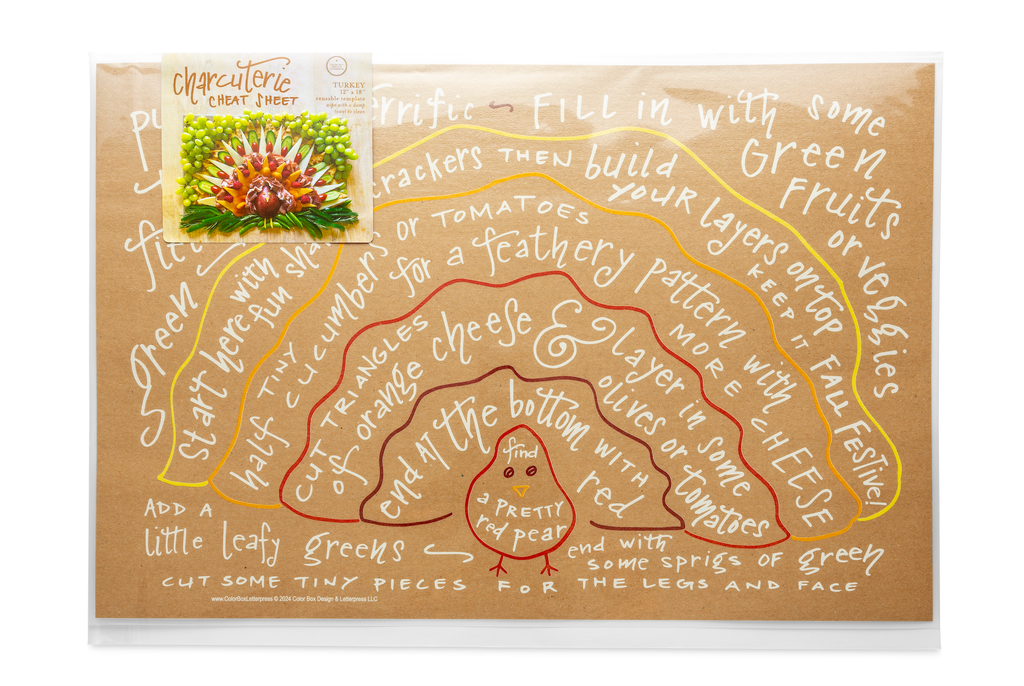 charcuterie
CHEAT SHEET
TURKEY
12" x 18"
reusable template
wipe with a damp
towel to clean
FILL in with some
Green
Fruits
or veggies
crackers THEN build
YOUR layers on top
KEEP IT FALL FESTIVE!
green
Start here with
fun
half TINY
CUCUMBERS or TOMATOES
for a feathery pattern with
MORE CHEESE
CUT TRIANGLES
of orange cheese & layer in some
olives or tomatoes
end AT the bottom WITH
red
find
a PRETTY
red pear
ADD A
little leafy greens
end with
some sprigs of green
CUT SOME TINY PIECES FOR THE LEGS AND FACE
www.ColorBoxLetterpress © 2024 Color Box Design & Letterpress LLC